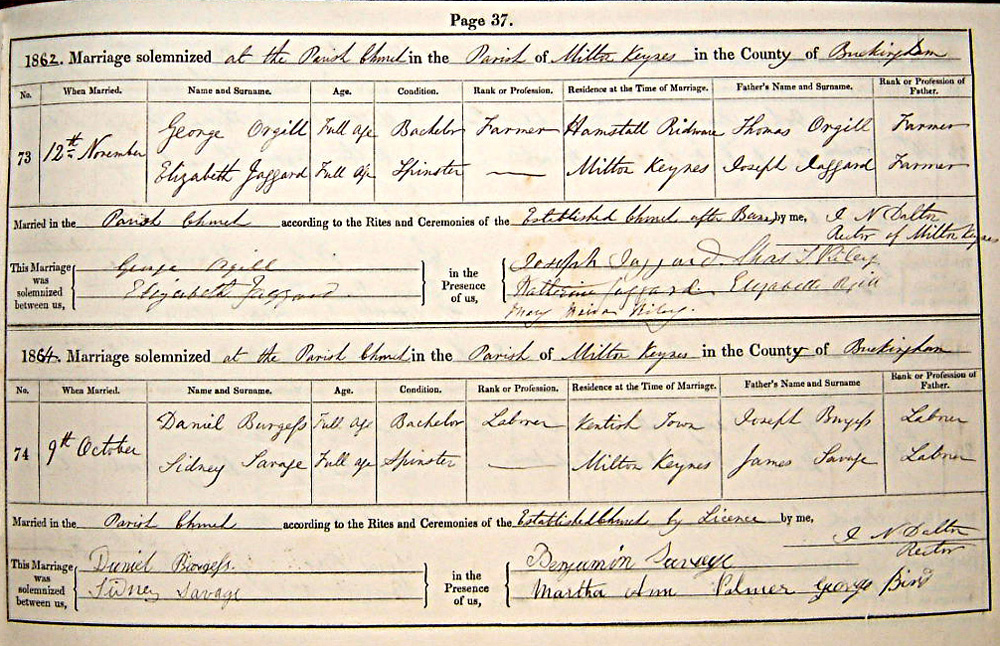 Page 37.
1862. Marriage solemnized at the Parish Church in the Parish of Milton Keynes in the County of Buckingham
No. When Married. Name and Surname. Age. Condition. Rank or Profession. Residence at the Time of Marriage. Father's Name and Surname. Rank or Profession of Father.
George Orgill Full age Bachelor Farmer Hamstall Ridware Thomas Orgill Farmer
73 12th November
Elizabeth Jaggard Full age Spinster — Milton Keynes Joseph Jaggard Farmer
Married in the Parish Church according to the Rites and Ceremonies of the Established Church after Banns by me, J N Dalton
Rector of Milton Keynes
This Marriage was solemnized between us, George Orgill
Elizabeth Jaggard
in the Presence of us, Joseph Jaggard
Katherine Jaggard Elizabeth Orgill
Mary Riley.
1864. Marriage solemnized at the Parish Church in the Parish of Milton Keynes in the County of Buckingham
No. When Married. Name and Surname. Age. Condition. Rank or Profession. Residence at the Time of Marriage. Father's Name and Surname Rank or Profession of Father.
Daniel Burgess Full age Bachelor Labourer Kentish Town Joseph Burgess Labourer
74 9th October
Sidney Savage Full age Spinster — Milton Keynes James Savage Labourer
Married in the Parish Church according to the Rites and Ceremonies of the Established Church by Licence by me, J N Dalton
Rector
This Marriage was solemnized between us, Daniel Burgess.
Sidney Savage
in the Presence of us, Benjamin Savage
Martha Ann Palmer George Bird